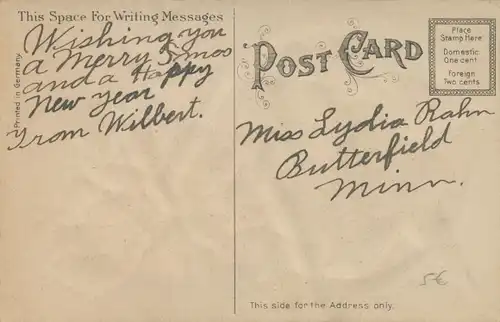 This Space For Writing Messages
Wishing you
a Merry Xmas
and a Happy
New year
From Wilbert.
Printed in Germany
POST CARD
Place
Stamp Here
Domestic
One cent
Foreign
Two cents
Miss Lydia Rahn
Butterfield
Minn.
5€
This side for the Address only.